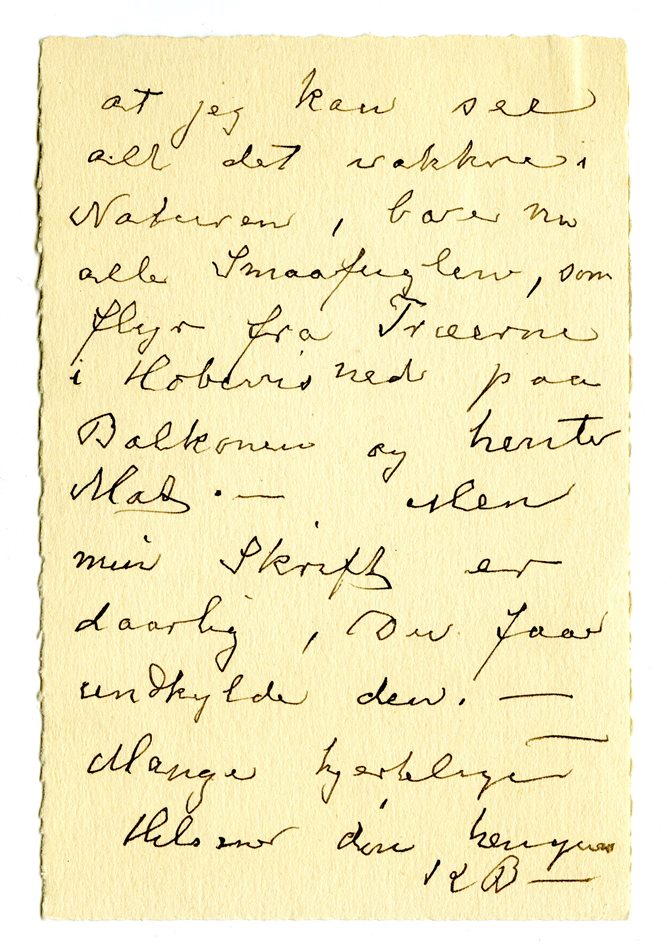 at jeg kan see
alt det vakkre i
Naturen, bare nu
alle Smaafuglen, som
flyr fra Træerne
i Hobevis ned paa
Balkonen og henter
Mat. — Men
min Skrift er
daarlig, Du faar
undskylde den. —
Mange hjertelige
Hilsener din hengivne
KB —